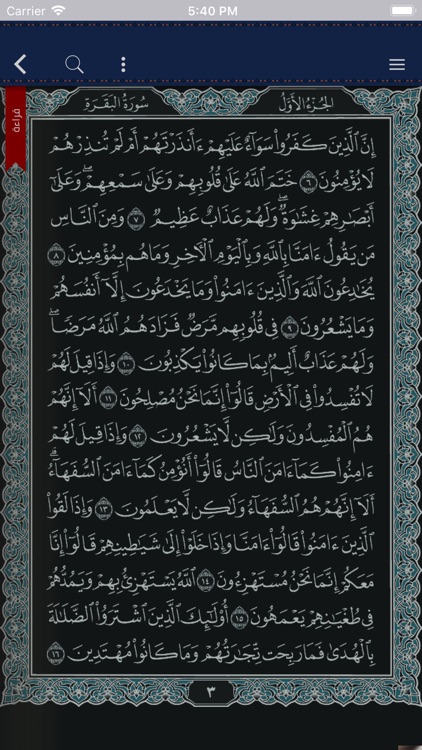 Carrier 5:40 PM
قراءة
الجُزءُ الأَوَّلُ سُورَةُ البَقَرَةِ
إِنَّ ٱلَّذِينَ كَفَرُوا۟ سَوَآءٌ عَلَيْهِمْ ءَأَنذَرْتَهُمْ أَمْ لَمْ تُنذِرْهُمْ
لَا يُؤْمِنُونَ ٦ خَتَمَ ٱللَّهُ عَلَىٰ قُلُوبِهِمْ وَعَلَىٰ سَمْعِهِمْ ۖ وَعَلَىٰٓ
أَبْصَٰرِهِمْ غِشَٰوَةٌ ۖ وَلَهُمْ عَذَابٌ عَظِيمٌ ٧ وَمِنَ ٱلنَّاسِ
مَن يَقُولُ ءَامَنَّا بِٱللَّهِ وَبِٱلْيَوْمِ ٱلْءَاخِرِ وَمَا هُم بِمُؤْمِنِينَ ٨
يُخَٰدِعُونَ ٱللَّهَ وَٱلَّذِينَ ءَامَنُوا۟ وَمَا يَخْدَعُونَ إِلَّآ أَنفُسَهُمْ
وَمَا يَشْعُرُونَ ٩ فِى قُلُوبِهِم مَّرَضٌ فَزَادَهُمُ ٱللَّهُ مَرَضًا ۖ
وَلَهُمْ عَذَابٌ أَلِيمٌۢ بِمَا كَانُوا۟ يَكْذِبُونَ ١٠ وَإِذَا قِيلَ لَهُمْ
لَا تُفْسِدُوا۟ فِى ٱلْأَرْضِ قَالُوٓا۟ إِنَّمَا نَحْنُ مُصْلِحُونَ ١١ أَلَآ إِنَّهُمْ
هُمُ ٱلْمُفْسِدُونَ وَلَٰكِن لَّا يَشْعُرُونَ ١٢ وَإِذَا قِيلَ لَهُمْ
ءَامِنُوا۟ كَمَآ ءَامَنَ ٱلنَّاسُ قَالُوٓا۟ أَنُؤْمِنُ كَمَآ ءَامَنَ ٱلسُّفَهَآءُ ۗ
أَلَآ إِنَّهُمْ هُمُ ٱلسُّفَهَآءُ وَلَٰكِن لَّا يَعْلَمُونَ ١٣ وَإِذَا لَقُوا۟
ٱلَّذِينَ ءَامَنُوا۟ قَالُوٓا۟ ءَامَنَّا وَإِذَا خَلَوْا۟ إِلَىٰ شَيَٰطِينِهِمْ قَالُوٓا۟ إِنَّا
مَعَكُمْ إِنَّمَا نَحْنُ مُسْتَهْزِءُونَ ١٤ ٱللَّهُ يَسْتَهْزِئُ بِهِمْ وَيَمُدُّهُمْ
فِى طُغْيَٰنِهِمْ يَعْمَهُونَ ١٥ أُو۟لَٰٓئِكَ ٱلَّذِينَ ٱشْتَرَوُا۟ ٱلضَّلَٰلَةَ
بِٱلْهُدَىٰ فَمَا رَبِحَت تِّجَٰرَتُهُمْ وَمَا كَانُوا۟ مُهْتَدِينَ ١٦
٣